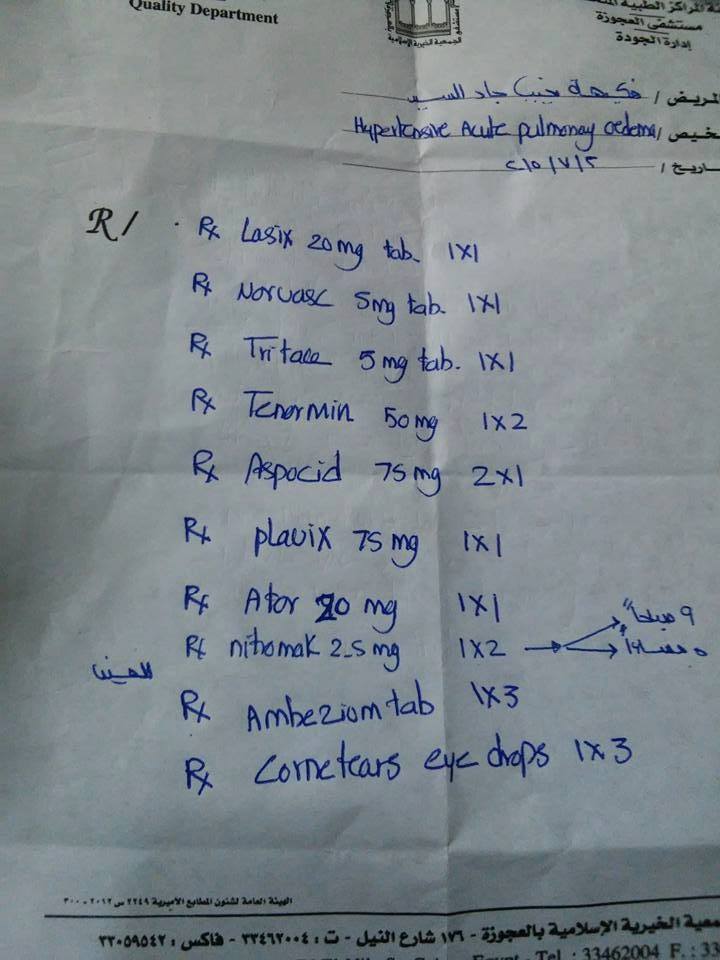 Quality Department
ة المراكز الطبية المت
مستشفى العجوزة
إدارة الجودة
الجمعية الخيرية الإسلامية
لمريض / جاد السيد
خيص / Hypertensive Acute pulmonay oedema
ـاريخ /
R/
Rx Lasix 20mg tab. 1x1
Rx Norvasc 5mg tab. 1x1
Rx Tritace 5mg tab. 1x1
Rx Tenormin 50mg 1x2
Rx Aspocid 75mg 2x1
Rx plavix 75mg 1x1
Rx Ator 20 mg 1x1
Rx nitromak 2.5mg 1x2 ٩ صباحاً
٥ مساءاً
Rx Ambeziom tab 1x3
Rx Cornetears eye drops 1x3
الهيئة العامة لشئون المطابع الأميرية ٢٢٤٩ س ٢٠١٢ - ٣٠٠
معية الخيرية الإسلامية بالعجوزة - ١٧٦ شارع النيل - ت : ٣٣٤٦٢٠٠٤ - فاكس : ٣٣٠٥٩٥٤٢
Egypt - Tel : 33462004 F. : 33